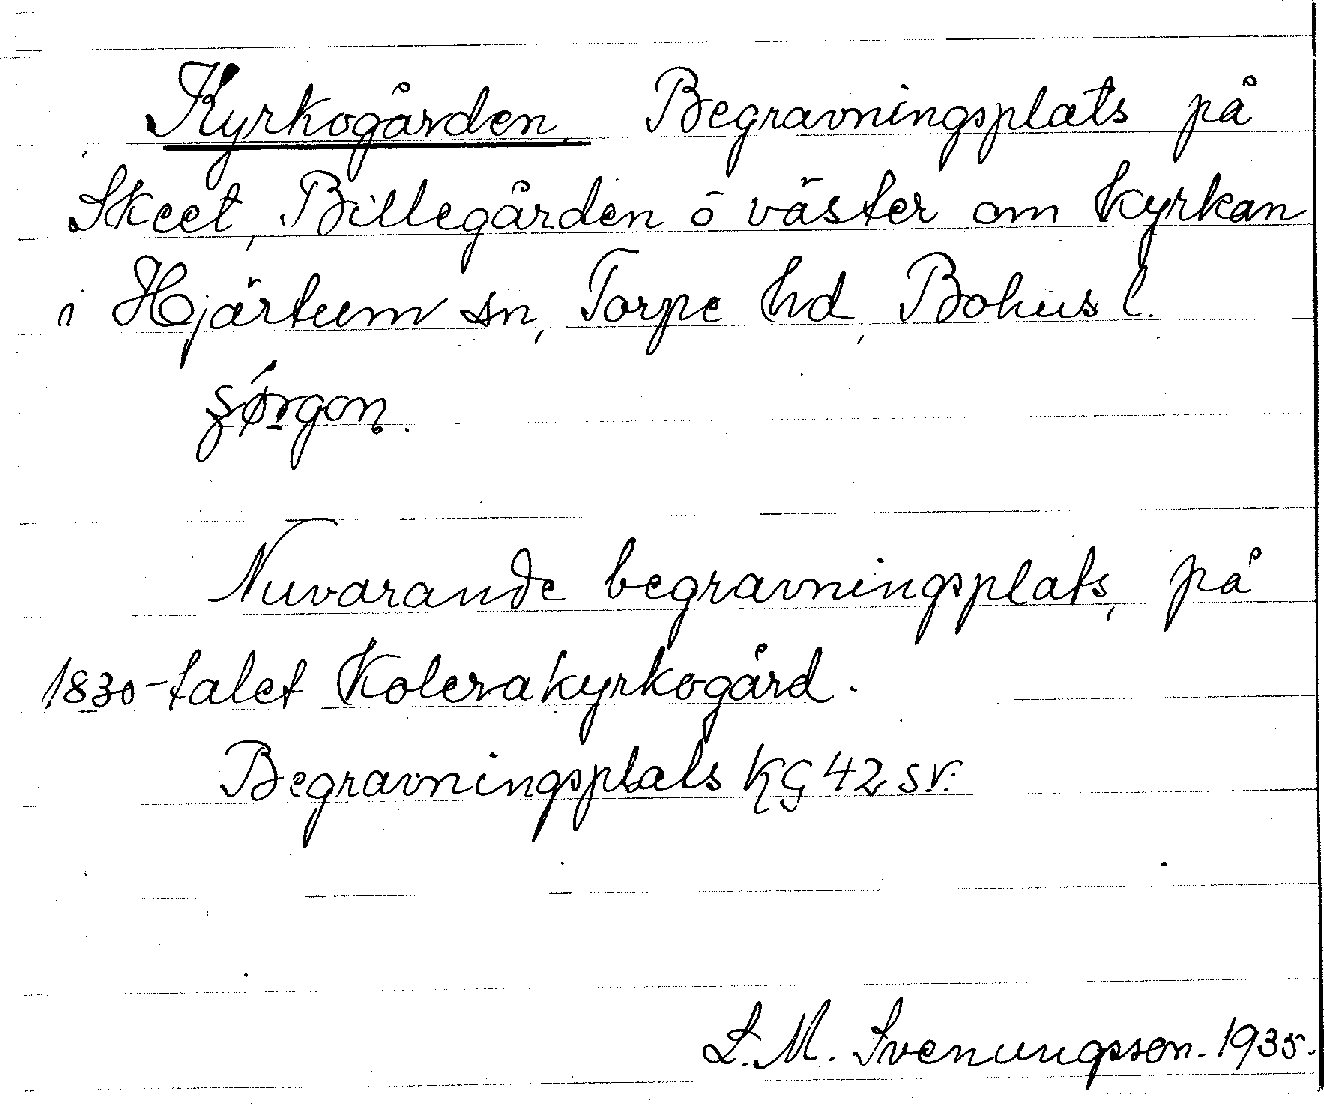 Kyrkogården. Begravningsplats på
Skeet, Billegården ö väster om kyrkan
i Hjärtum sn, Torpe hd, Bohus l.
Nuvarande begravningsplats, på
1830-talet Kolerakyrkogård.
Begravningsplats KG 42 SV.
L. M. Svenungsson. 1935.